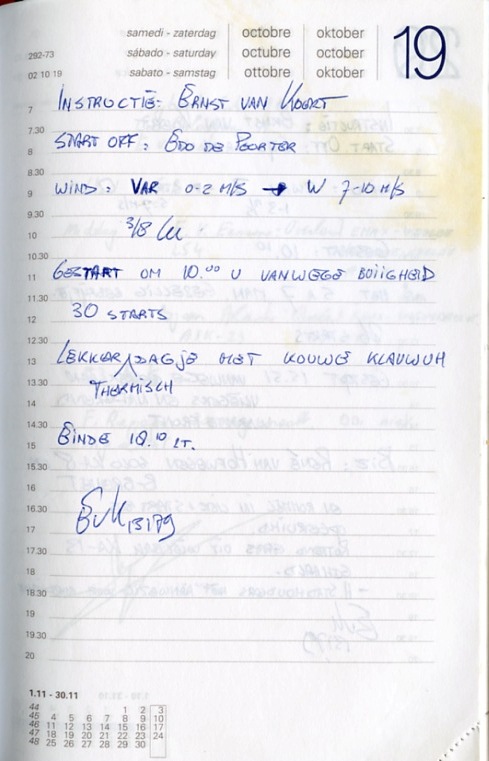 samedi - zaterdag octobre oktober 19
292-73 sábado - saturday octubre october
02 10 19 sabato - samstag ottobre oktober
7 INSTRUCTIE: ERNST VAN
7.30
8 START OFF: EDO DE POORTER
8.30
9 WIND: VAR 0-2 M/S → W 7-10 M/S
9.30
10 3/8 Cu
10.30
11 GESTART OM 10.00 U VANWEGE BOIIGHEID
11.30
12 30 STARTS
12.30
13 LEKKER DAGJE MET KOUWE KLAUWUH
13.30 THERMISCH
14
14.30
15 EINDE 18.10 LT.
15.30
16
16.30 EvK 13179
17
17.30
18
18.30
19
19.30
20
1.11 - 30.11
44 1 2 3
45 4 5 6 7 8 9 10
46 11 12 13 14 15 16 17
47 18 19 20 21 22 23 24
48 25 26 27 28 29 30